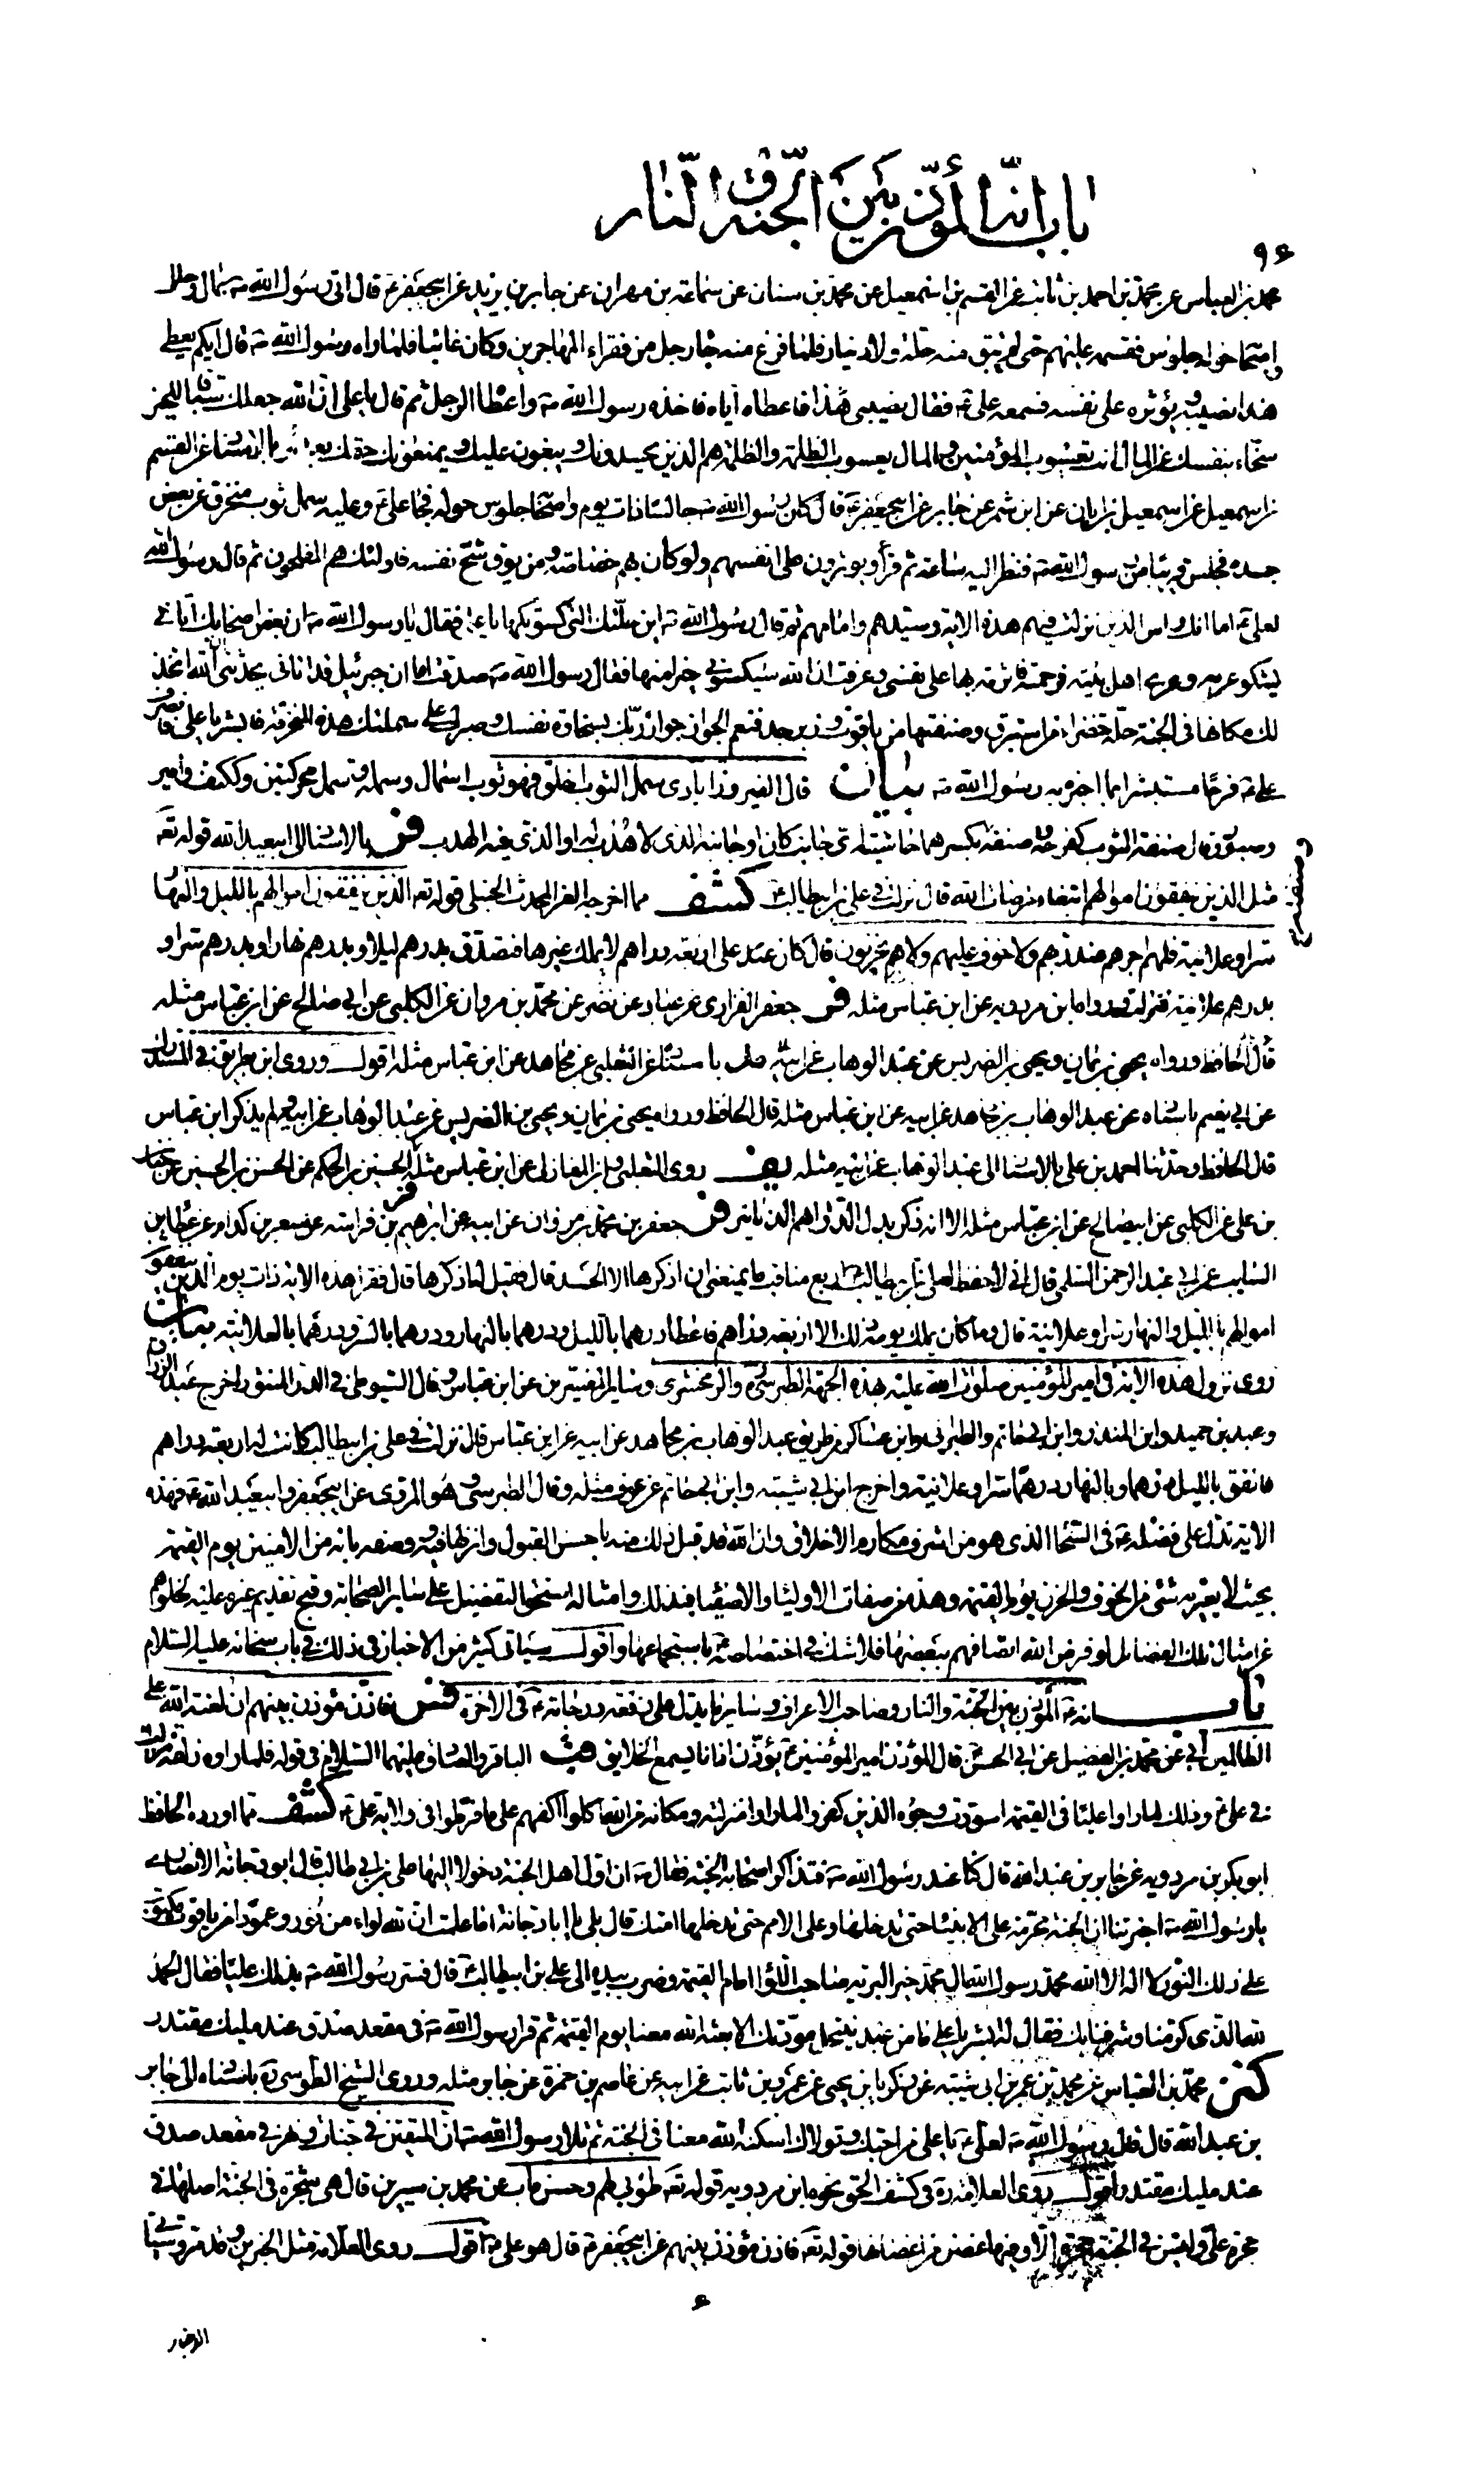 باب انه المؤذن بين الجنة و النار
۹۶
محمد بن العباس عن محمد بن احمد بن ثابت عن القسم بن اسمعيل عن محمد بن سنان عن سماعة بن مهران عن جابر بن يزيد عن ابيجعفر ع قال اتى رسول الله ص بمال وحلل
واصحابه حوله جلوس فقسمه عليهم حتى لم يبق منه حلة ولا دينار فلما فرغ منه جاء رجل من فقراء المهاجرين وكان غائبا فلما راه رسول الله ص قال ايكم يعطى
هذا نصيبه ويؤثره على نفسه فسمعه على ع فقال نصيبى هذا فاعطاه اياه فاخذه رسول الله ص واعطاه الرجل ثم قال يا على ان الله جعلك سباقا للخير
سخاء بنفسك عن المال انت يعسوب المؤمنين والمال يعسوب الظلمة والظلمة هم الذين يحسدونك ويبغون عليك ويمنعونك حقك بعدى بالاسناد عن القسم
بن اسمعيل عن اسمعيل بن ابان عن ابن شمر عن جابر عن ابيجعفر ع قال كان رسول الله ص جالسا ذات يوم واصحابه جلوس حوله فجاء على ع وعليه سمل ثوب منخرق عن بعض
جسده فجلس قريبا من رسول الله ص فنظر اليه ساعة ثم قرأ ويؤثرون على انفسهم ولو كان بهم خصاصة ومن يوق شح نفسه فاولئك هم المفلحون ثم قال رسول الله
لعلى ع اما انك راس الذين نزلت فيهم هذه الاية وسيدهم وامامهم ثم قال رسول الله ص اين حلتك التى كسوتكها يا على فقال يا رسول الله ص ان بعض اصحابك اتانى
يشكو عريه وعرى اهل بيته فرحمته فاثرته بها على نفسى وعرفت ان الله سيكسونى خيرا منها فقال رسول الله ص صدقت اما ان جبرئيل قد اتانى يحدثنى ان الله اتخذ
لك مكانها فى الجنة حلة خضراء من استبرق وصنفتها من ياقوت وزبرجد فنعم الجواز جواز ربك بسخاوة نفسك وصبرك على سملتك هذه المنخرقة فابشر يا على فانصرف
على ع فرحا مستبشرا بما اخبره به رسول الله ص بيان قال الفيروزابادى سمل الثوب اخلق فهو ثوب اسمال وسملة وسمل محركتين وككتف وامير
وصبور وقال صنفة الثوب كفرحة وصنفه بكسرهما حاشيته اى جانب كان او جانبه الذى لا هدب له او الذى فيه الهدب فر بالاسناد الى ابيعبد الله قوله تع
وصنفته
مثل الذين ينفقون اموالهم ابتغاء مرضات الله قال نزلت فى على بن ابيطالب ع كشف مما اخرجه العز المحدث الحنبلى قوله تع الذين ينفقون اموالهم بالليل والنهار
سرا وعلانية فلهم اجرهم عند ربهم ولا خوف عليهم ولا هم يحزنون قال كان عند على اربعة دراهم لا يملك غيرها فتصدق بدرهم ليلا وبدرهم نهارا وبدرهم سرا و
بدرهم علانية فنزلت ورواه ابن مردويه عن ابن عباس مثله فر جعفر الفزارى عن عباد عن نضر عن محمد بن مروان عن الكلبى عن ابى صالح عن ابن عباس مثله
قال الحافظ ورواه يحيى بن يمان ويحيى بن الضريس عن عبد الوهاب عن ابيه باسناد عن الثعلبى عن مجاهد عن ابن عباس مثله اقول وروى ابن بطريق فى المستدرك
عن ابى نعيم باسناده عن عبد الوهاب بن مجاهد عن ابيه عن ابن عباس مثله قال الحافظ ورواه يحيى بن يمان ويحيى بن الضريس عن عبد الوهاب عن ابيه ولم يذكر ابن عباس
قال الحافظ وحدثنا احمد بن على بالاسناد الى عبد الوهاب عن ابيه مثله يف روى الثعلبى وابن المغازلى عن ابن عباس مثله فر الحسين بن الحكم عن الحسن بن الحسين عن حبان
بن على عن الكلبى عن ابيصالح عن ابن عباس مثله الا انه ذكر بدل الدراهم الدنانير فر جعفر بن محمد بن مروان عن ابيه عن ابرهيم بن فراسة عن مسعر بن كدام عن عطا بن
السايب عن ابى عبد الرحمن السلمى قال انى لاحفظ لعلى بن ابيطالب ع اربع مناقب ما يمنعنى ان اذكرها الا الحسد قال فقيل له اذكرها قال فقرأ هذه الاية ذات يوم الذين ينفقون
اموالهم بالليل والنهار سرا وعلانية قال وما كان يملك يومئذ لك الا اربعة دراهم فاعطا درهما بالليل ودرهما بالنهار ودرهما بالسر ودرهما بالعلانية بيان
روى نزول هذه الاية فى امير المؤمنين صلوات الله عليه هذه الجهة الطبرسى ره والزمخشرى وساير المفسرين عن ابن عباس وقال السيوطى فى الدر المنثور اخرج عبد الرزاق
وعبد بن حميد وابن المنذر وابن ابى حاتم والطبرانى وابن عساكر من طريق عبد الوهاب بن مجاهد عن ابيه عن ابن عباس قال نزلت فى على بن ابيطالب كانت له اربعة دراهم
فانفق بالليل درهما وبالنهار درهما سرا وعلانية واخرج ابن ابى شيبة وابن ابى حاتم عن عوف مثله وقال الطبرسى وهو المروى عن ابيجعفر وابيعبد الله ع فهذه
الاية تدل على فضله ع فى السخا الذى هو من اشرف مكارم الاخلاق وان الله قد قبل ذلك منه باحسن القبول وانزلها فيه ووصفه بانه من الامنين يوم القيمة
بحيث لا يعتريه شئ من الخوف والحزن يوم القيمة وهذه من صفات الاولياء والاصفياء فبذلك وامثاله استحق التفضيل على ساير الصحابة وقبح تقديم غيره عليه لخلوهم
عن مثال تلك الفضائل او فرض الله اتصافهم ببعضها فلا شك فى اختصاصه ع باستجماعها واقول سياتى كثير من الاخبار فى ذلك فى باب سخائه عليه السلام
باب انه ع المؤذن بين الجنة والنار وصاحب الاعراف وساير ما يدل على رفعة درجاته ع فى الاخرة فس فاذن مؤذن بينهم ان لعنة الله على
الظالمين ابى عن محمد بن الفضيل عن ابى الحسن ع قال المؤذن امير المؤمنين ع يؤذن اذانا يسمع الخلايق قب الباقر والصادق عليهما السلام فى قوله فلما راوه زلفة نزلت
فى على ع وذلك لما راوا عليا فى القيمة اسودت وجوه الذين كفروا لما راوا منزلته ومكانه من الله اكلوا اكفهم على ما فرطوا فى ولاية على ع كشف مما اورده الحافظ
ابو بكر بن مردويه عن جابر بن عبد الله قال كنا عند رسول الله ص فتذاكر اصحابه الجنة فقال ص ان اول اهل الجنة دخولا اليها على بن ابى طالب قال ابو دجانة الانصارى
يا رسول الله ص اخبرتنا ان الجنة محرمة على الانبياء حتى تدخلها وعلى الامم حتى تدخلها امتك قال بلى يا ابا دجانة اما علمت ان لله لواء من نور وعمودا من ياقوت مكتوب
على ذلك النور لا اله الا الله محمد رسول الله ال محمد خير البرية صاحب اللواء امام القيمة وضرب بيده الى على بن ابيطالب ع قال فسر رسول الله ص بذلك عليا فقال الحمد
لله الذى كرمنا وشرفنا بك فقال له ابشر يا على ما من عبد ينتحل مودتك الا بعثه الله معنا يوم القيمة ثم قرا رسول الله ص فى مقعد صدق عند مليك مقتدر
كنز محمد بن العباس عن محمد بن عمر بن ابى شيبة عن زكريا بن يحيى عن عمرو بن ثابت عن ابيه عن عاصم بن ضمرة عن جابر مثله وروى الشيخ الطوسى ره باسناده الى جابر
بن عبد الله قال قال رسول الله ص لعلى ع يا على من احبك وتولاك اسكنه الله معنا فى الجنة ثم تلا رسول الله ص ان المتقين فى جنات ونهر فى مقعد صدق
عند مليك مقتدر اقول روى العلامة ره فى كشف الحق نحوه ابن مردويه قوله تع طوبى لهم وحسن ماب عن محمد بن سيرين قال هى شجرة فى الجنة اصلها فى
حجرة على وليس فى الجنة حجرة الا وفيها غصن من اغصانها قوله تع فاذن مؤذن بينهم عن ابيجعفر ع قال هو على ع اقول روى العلامة مثل الخبرين وقد مر وسياتى
الاخبار